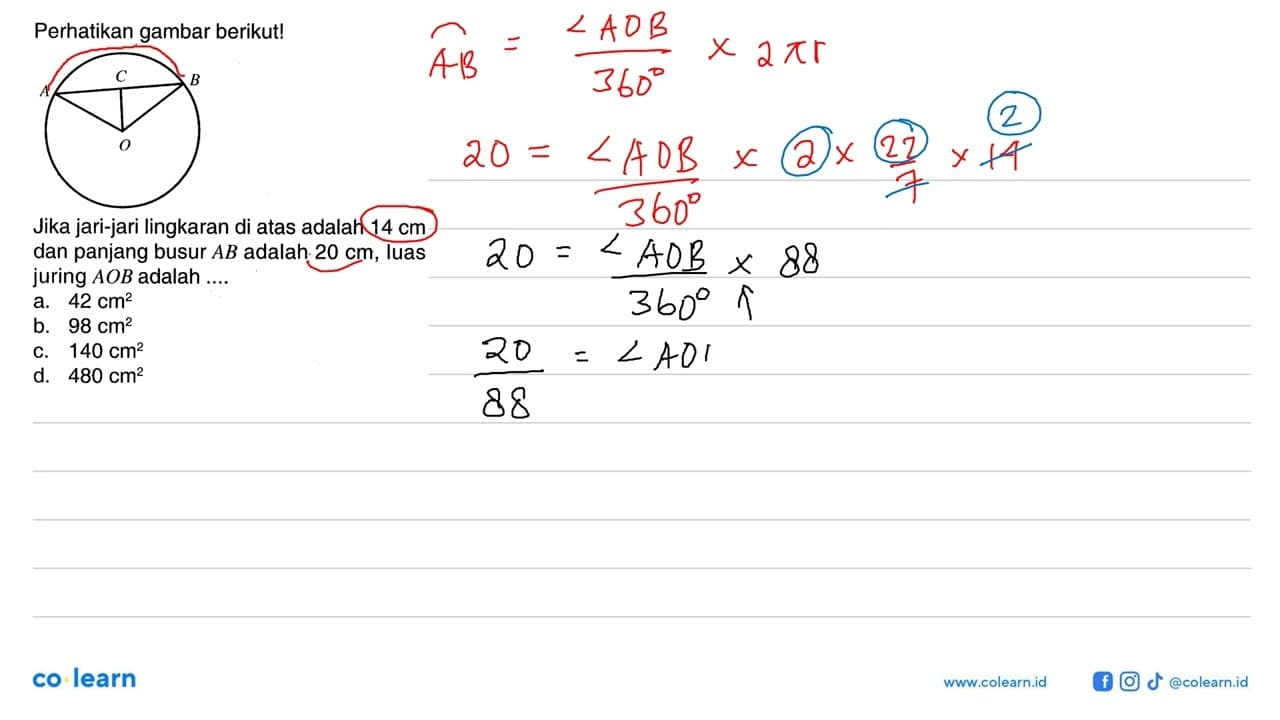 Perhatikan gambar berikut!
A
C
B
O
Jika jari-jari lingkaran di atas adalah 14 cm
dan panjang busur AB adalah 20 cm, luas
juring AOB adalah ....
a. 42 cm²
b. 98 cm²
c. 140 cm²
d. 480 cm²
AB = ∠AOB/360° × 2πr
20 = ∠AOB/360° × 2 × 22/7 × 14 2
20 = ∠AOB/360° × 88
20/88 = ∠AO
co learn
www.colearn.id
@colearn.id